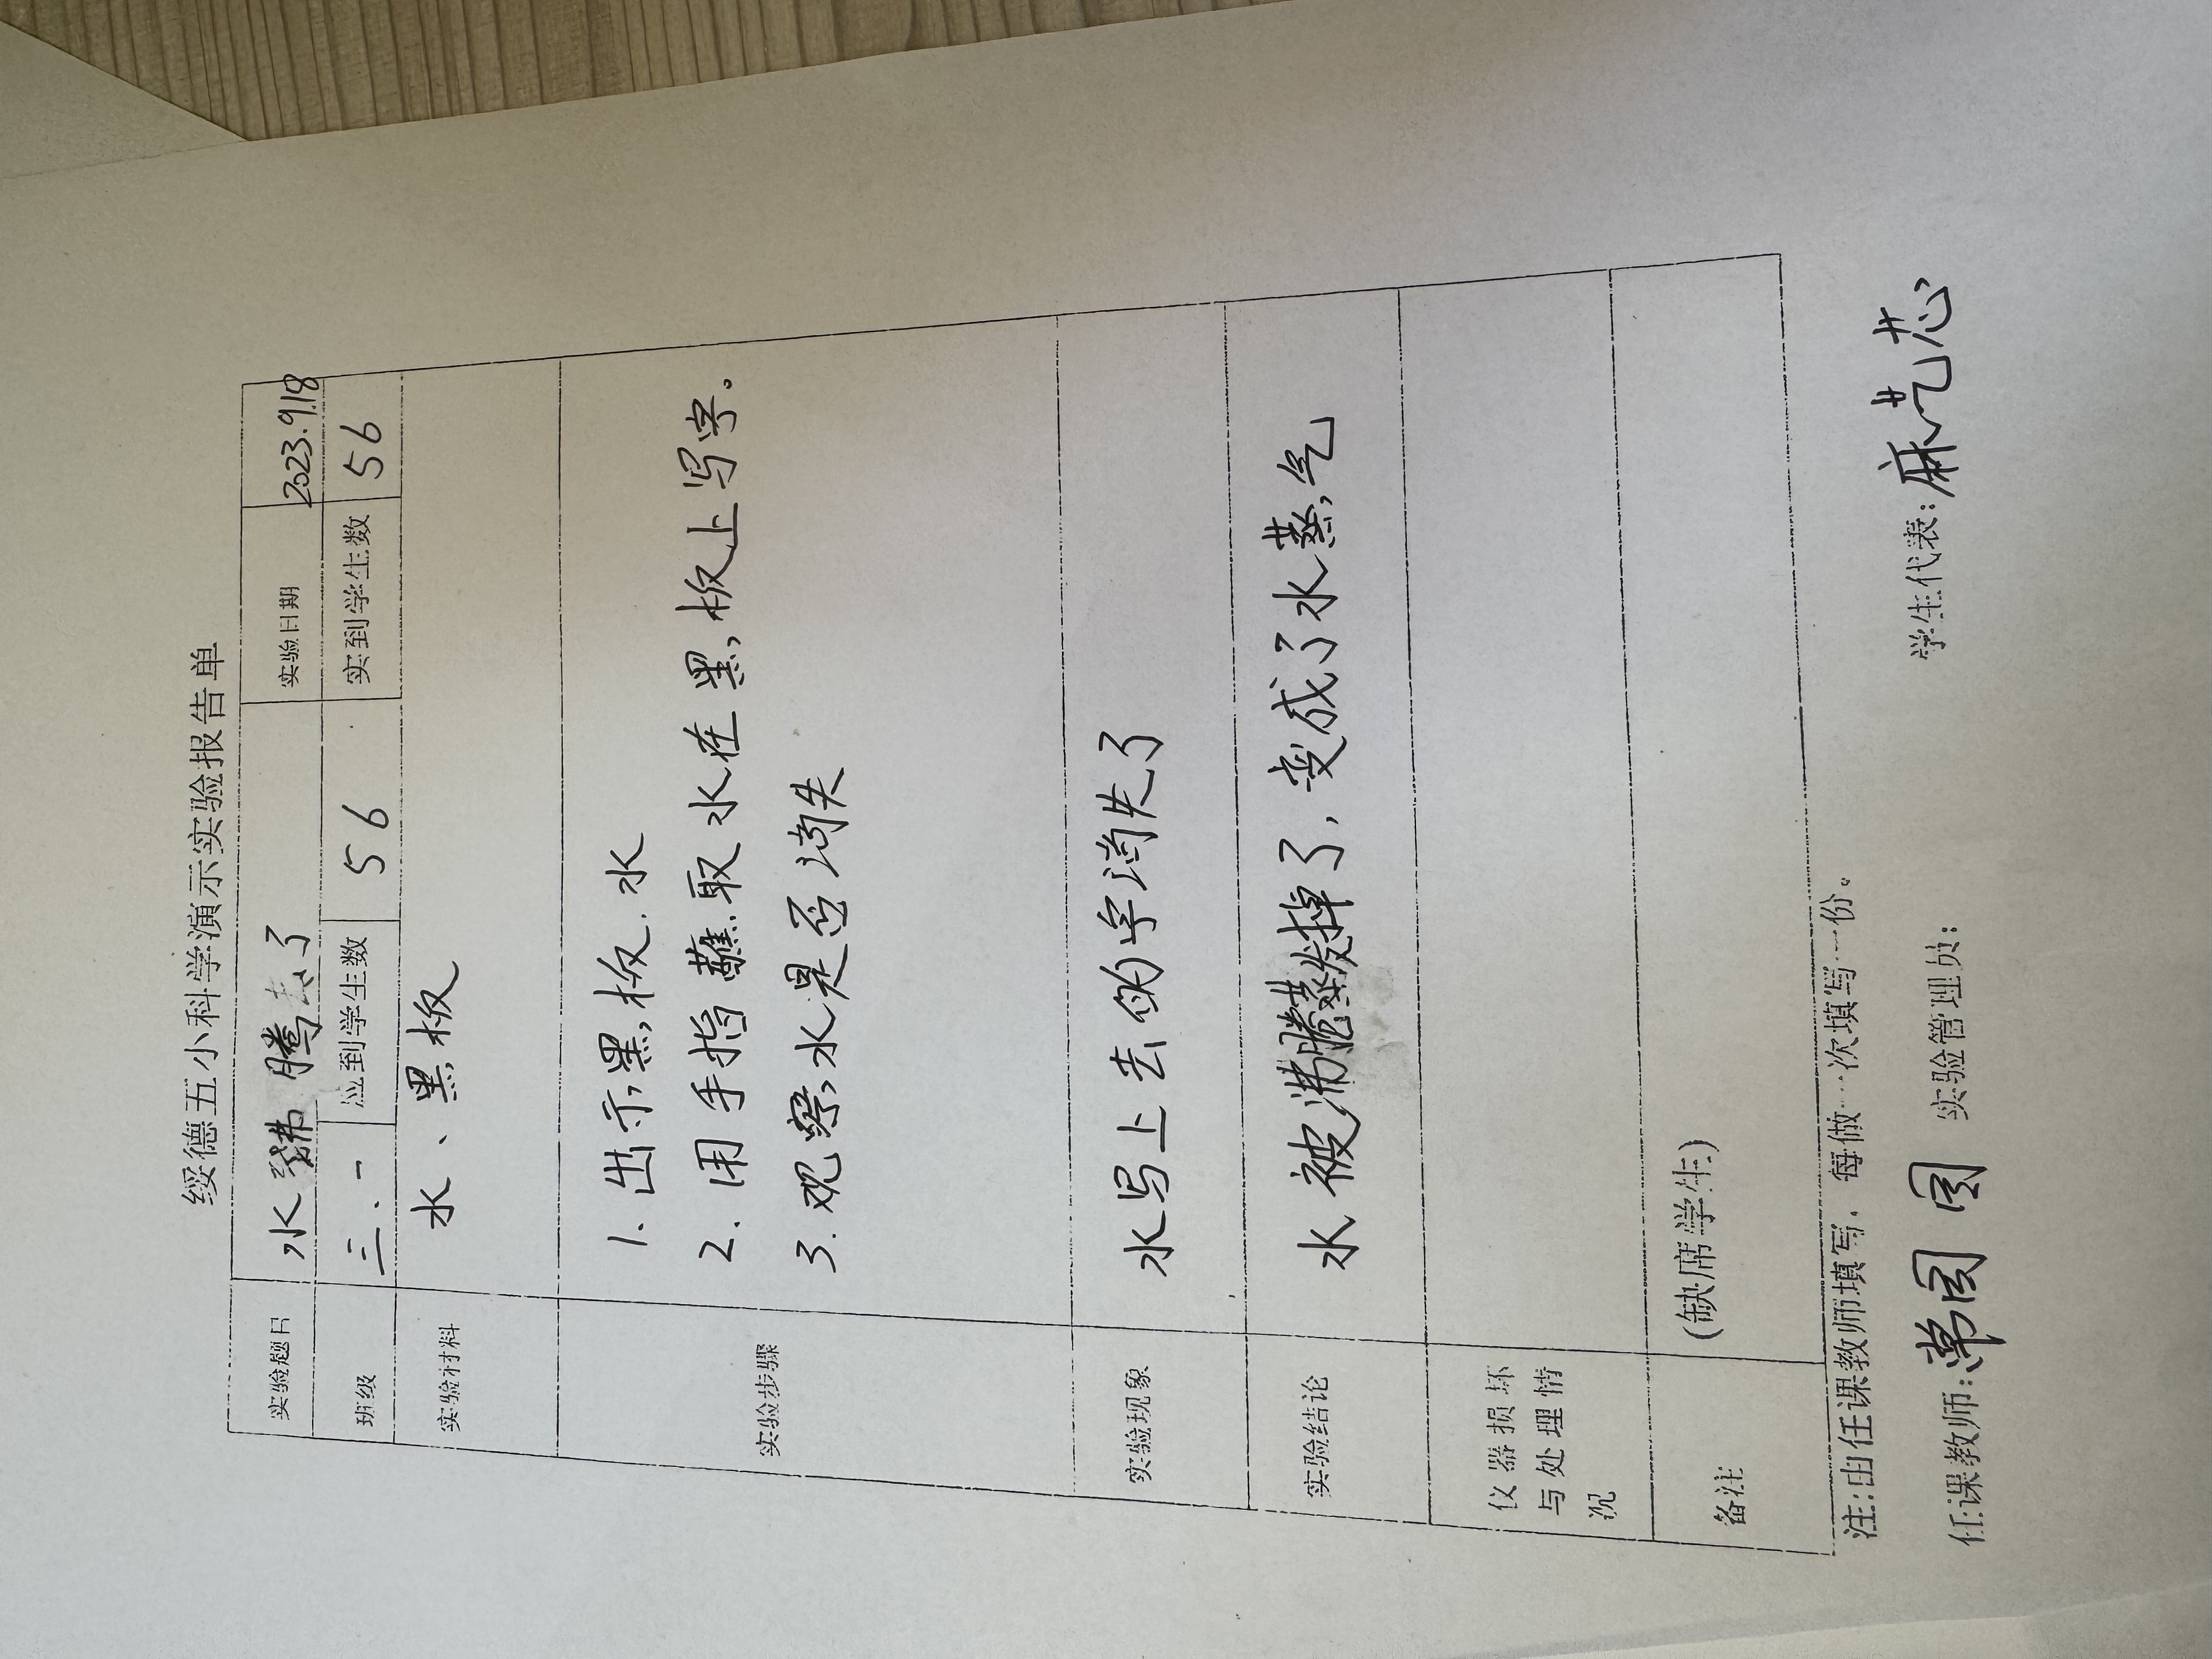 绥德五小科学演示实验报告单
实验题目 水沸腾了 实验日期 2023.9.18
班级 三.一 应到学生数 56 实到学生数 56
实验材料 水、黑板
实验步骤
1.出示黑板.水
2.用手指蘸取水在黑板上写字。
3.观察水是否消失
实验现象 水写上去的字消失了
实验结论 水被沸腾掉了,变成了水蒸气
仪器损坏
与处理情
况
备注 (缺席学生)
注:由任课教师填写,每做一次填写一份。
任课教师:常团团 实验管理员: 学生代表:麻艺芯